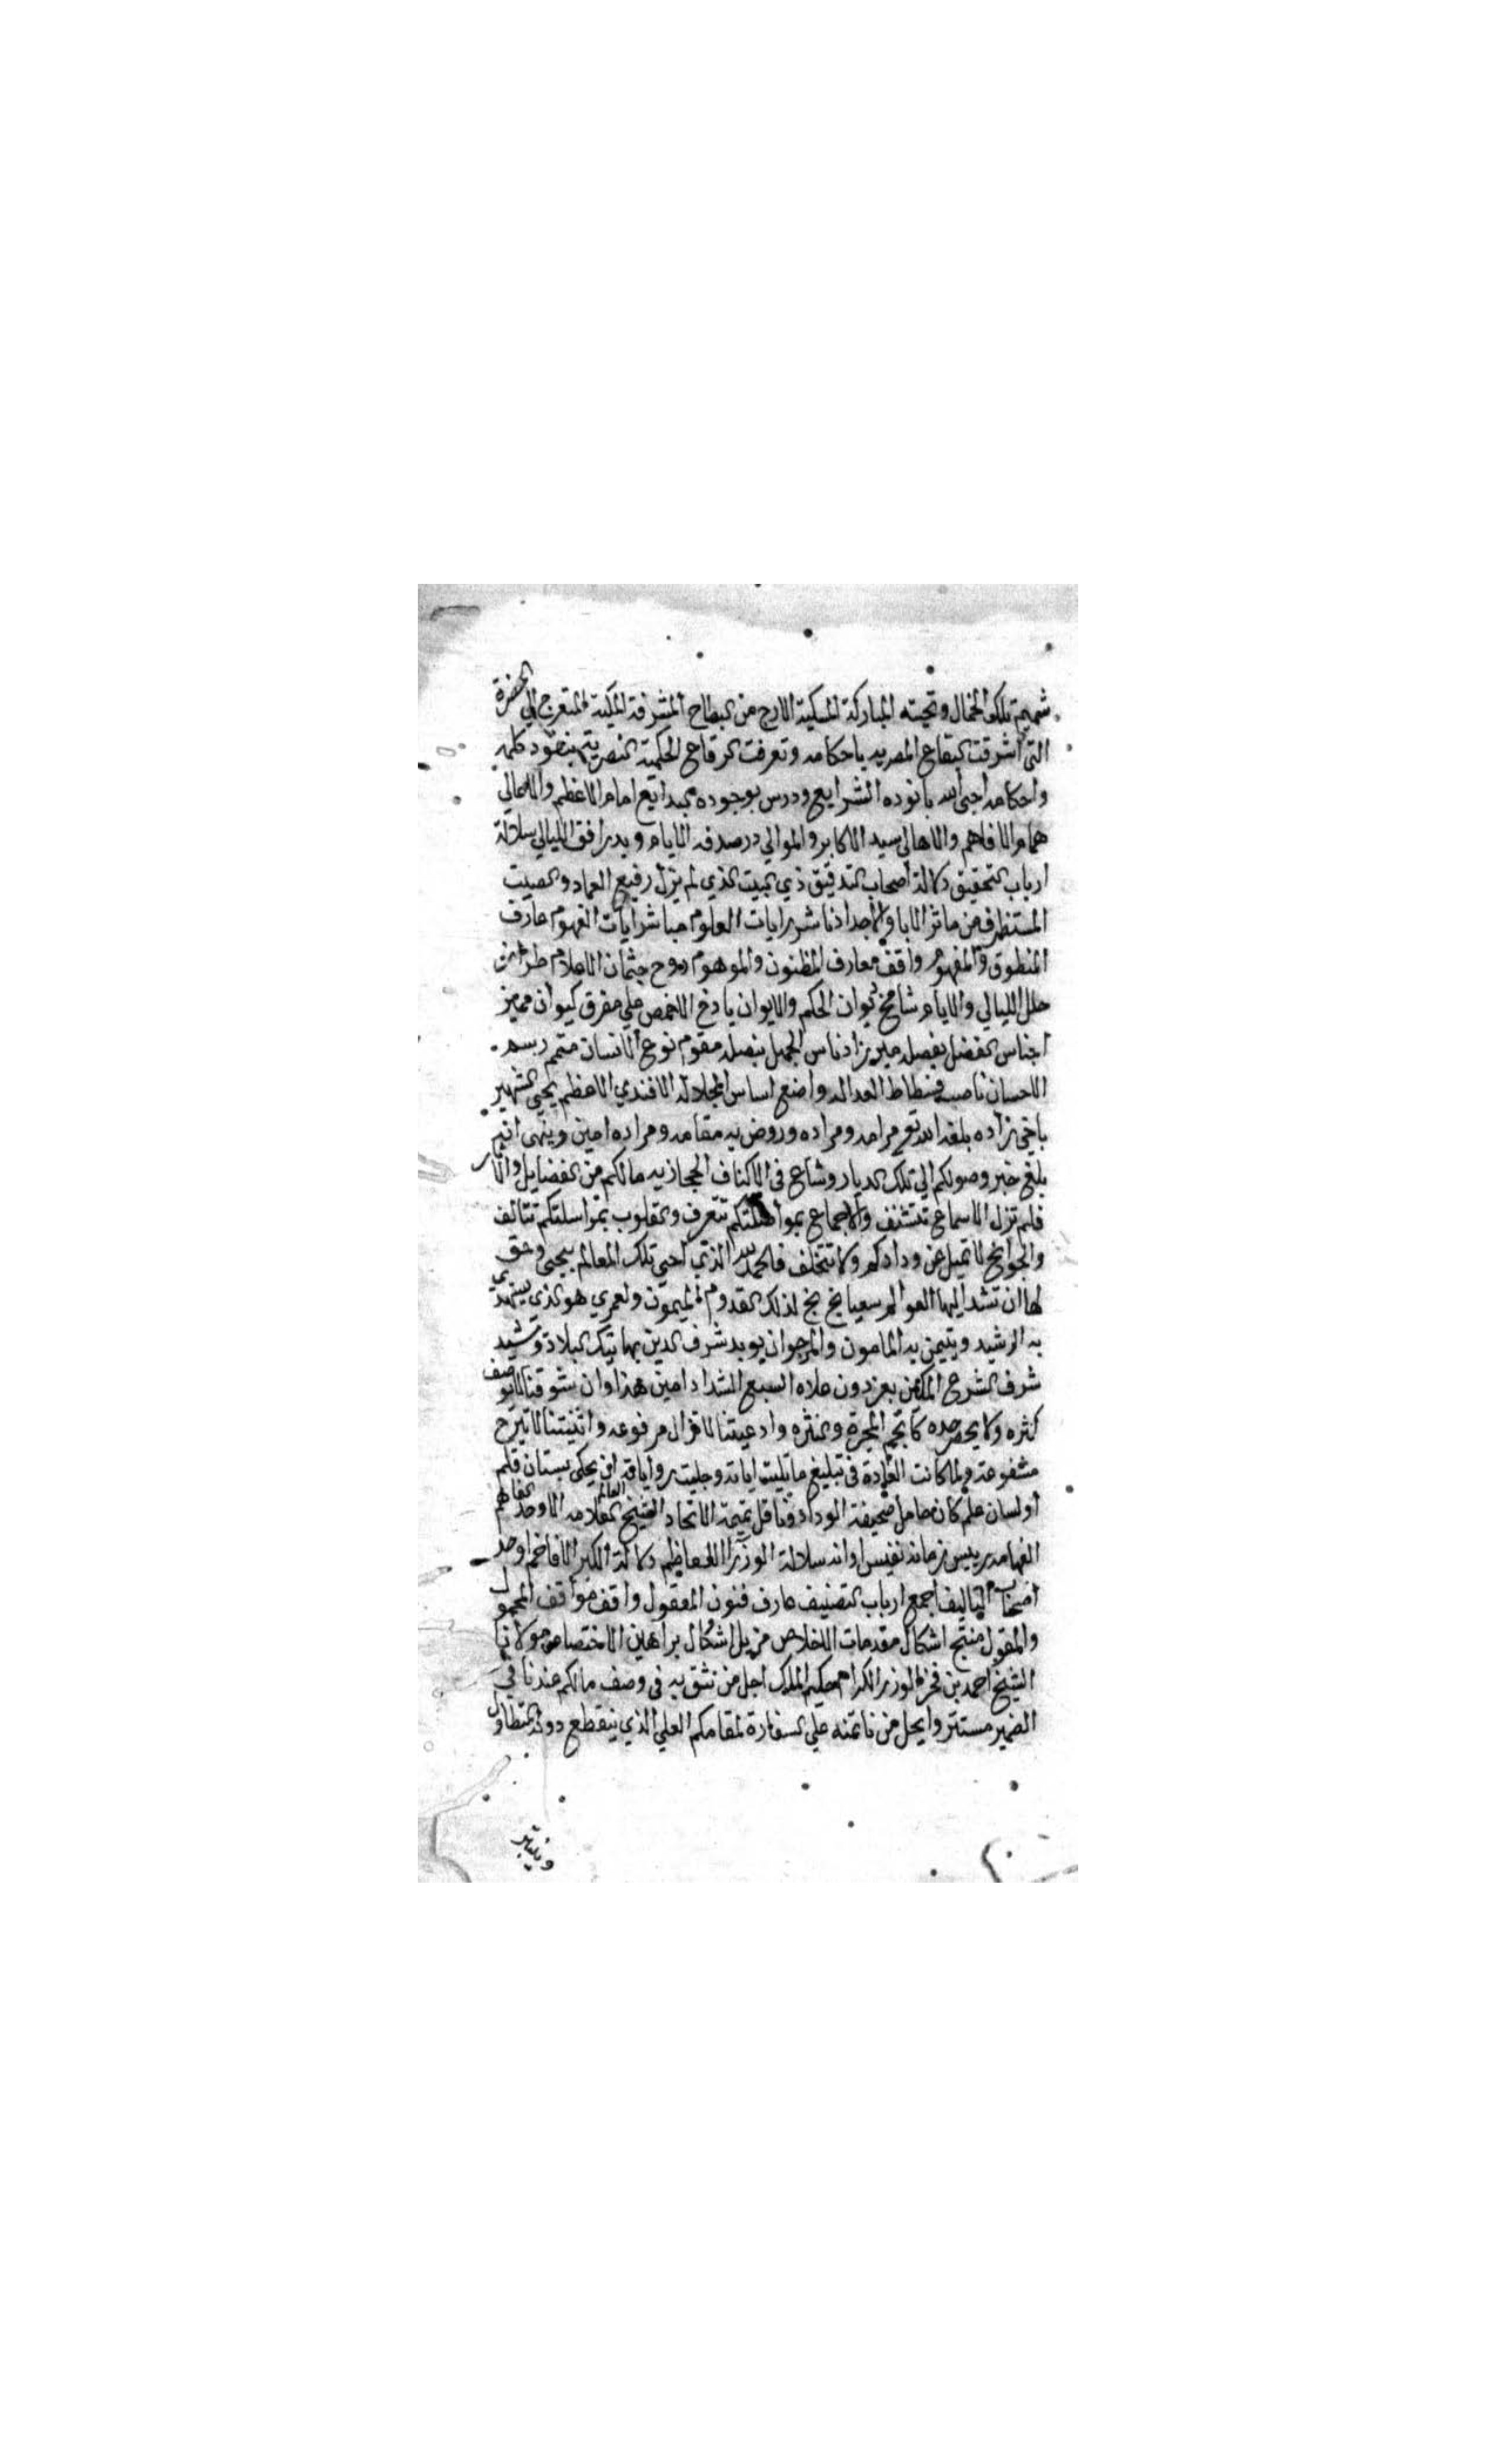 شميم تلك الخمال وتحيته المباركة المسكية الارج من البطاح المشرفة المكية المتعرج الي الحضرة
التي اشرقت البقاع المصريه باحكامه وتعرفت الرقاع الحكمية النصرية بنقود كلمه
واحكامه احيي الله بانوده الشرايع ودرس بوجوده امام الاعظم والاهالي
همام الافاهم والاهالي سيد الاكابر والموالي در صدفة الايام وبدر افق الليالي سلالة
ارباب التحقيق كلالة اصحاب التدقيق ذي البيت الذي لم يزل رفيع العماد والصيت
المستظرف من ماثر الابا والاجداد ناشر رايات العلوم مباشر ايات الفهوم عارف
المنطوق والمفهوم واقف معارف المظنون والموهوم روح جثمان الاعلام طراز
حلل الليالي والايام شامخ ايوان الحكم والايوان ياذخ الاخمص علي مفرق كيوان مميز
اجناس الفضل بفصله الجميل بنصله مقوم نوع الانسان متمم رسم
الاحسان ناصب فسطاط العداله واضع اساس الجلاله الافندي الاعظم يحيي الشهير
باخي زاده بلغه الله تع مرامه ومراده وروض به مقامه ومراده امين وينهي انه
بلغ خبر وصولكم الي تلك الديار وشاع في الاكناف الحجازيه مالكم من الفضايل والاثار
فلم تزل الاسماع تتشنف والاجماع بمواصلتكم تتعرف والقلوب بمراسلتكم تتالف
والجوانح لا تميل عن ودادكم ولا تتخلف فالحمد لله الذي احيي تلك المعالم بيحيي وحق
لها ان تشد اليها العوالم سعيا بخ بخ لذلك القدوم الميمون ولعمري هو الذي يهتدي
به الرشيد ويتيمن به المامون والمرجو ان يويد شرف الدين بها تيك البلاد وتشيد
شرف الشرع المكين بعز دون علاه السبع الشداد امين هذا وان شوقنا لا يوصف
كثره ولا يحصر حده كانجم المجرة والنثره وادعيتنا لا تزال مرفوعه واثنيتنا لا تبرح
مشفوعة ولما كانت العادة في تبليغ ما تليت اياته وجليت رواياته ان يحكي ببستان قلم
او لسان علم كان حامل صحيفة الوداد وناقل تميمة الاتحاد الشيخ العالم العلامه الاوحد الفاهم
الفهامه رييس زمانه نفيس اوانه سلالة الوزرا الاعاظم كلالة الكبرا الافاخم اوحد
اصحاب التاليف اجمع ارباب التصنيف عارف فنون المعقول واقف مواقف المحمول
والمقول منتج اشكال مقدمات الاخلاص مزيل اشكال براهين الاختصاص مولانا
الشيخ احمد بن فخر الوزير الكرام حكيم الملك اجل من نثق به في وصف مالكم عندنا في
الضمير مستتر وايحل من ناتمنه علي السفارة لمقامكم العلي الذي ينقطع دونه التطاول